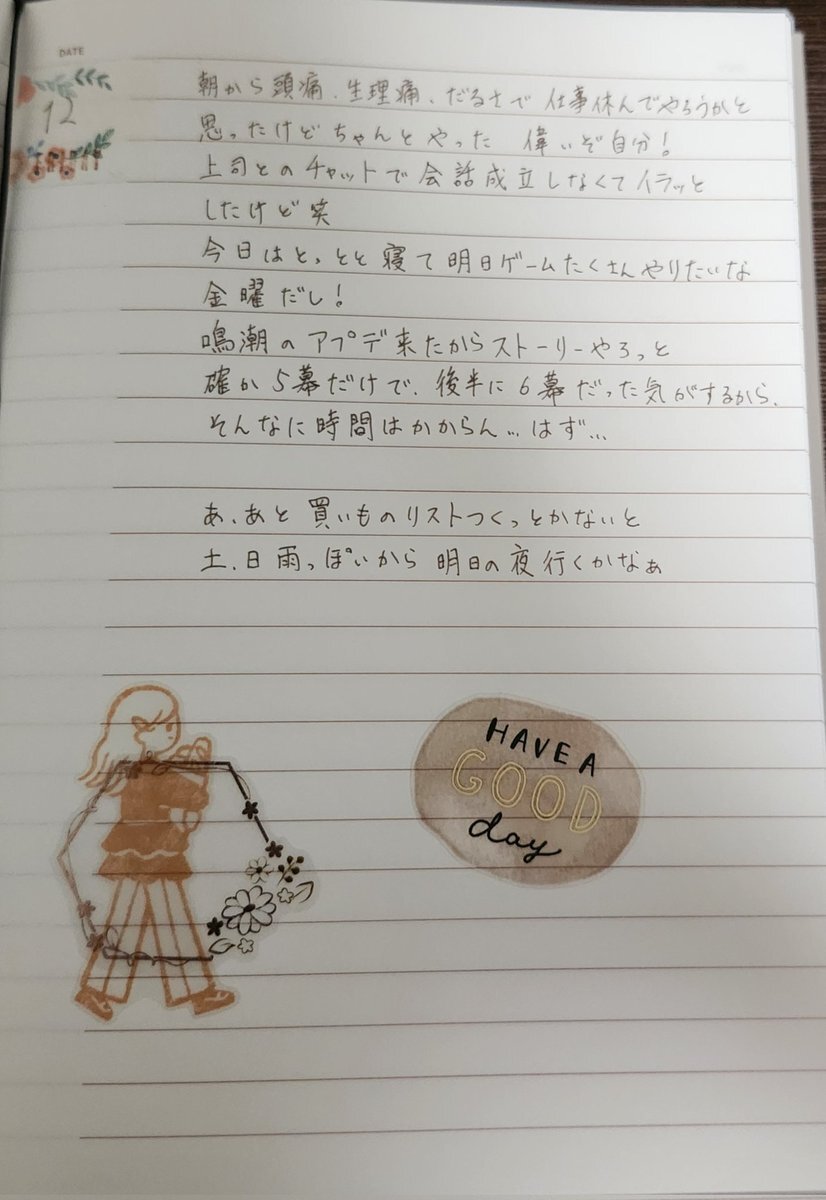 DATE
12
朝から頭痛、生理痛、だるさで 仕事休んでやろうかと
思ったけどちゃんとやった 偉いぞ自分!
上司とのチャットで会話成立しなくてイラッと
したけど笑
今日はとっとと寝て明日ゲームたくさんやりたいな
金曜だし!
鳴潮のアプデ来たからストーリーやろっと
確か5幕だけで、後半に6幕だった気がするから、
そんなに時間はかからん…はず…
あ、あと買いものリストつくっとかないと
土、日雨っぽいから明日の夜行くかなぁ
HAVE A
GOOD
day